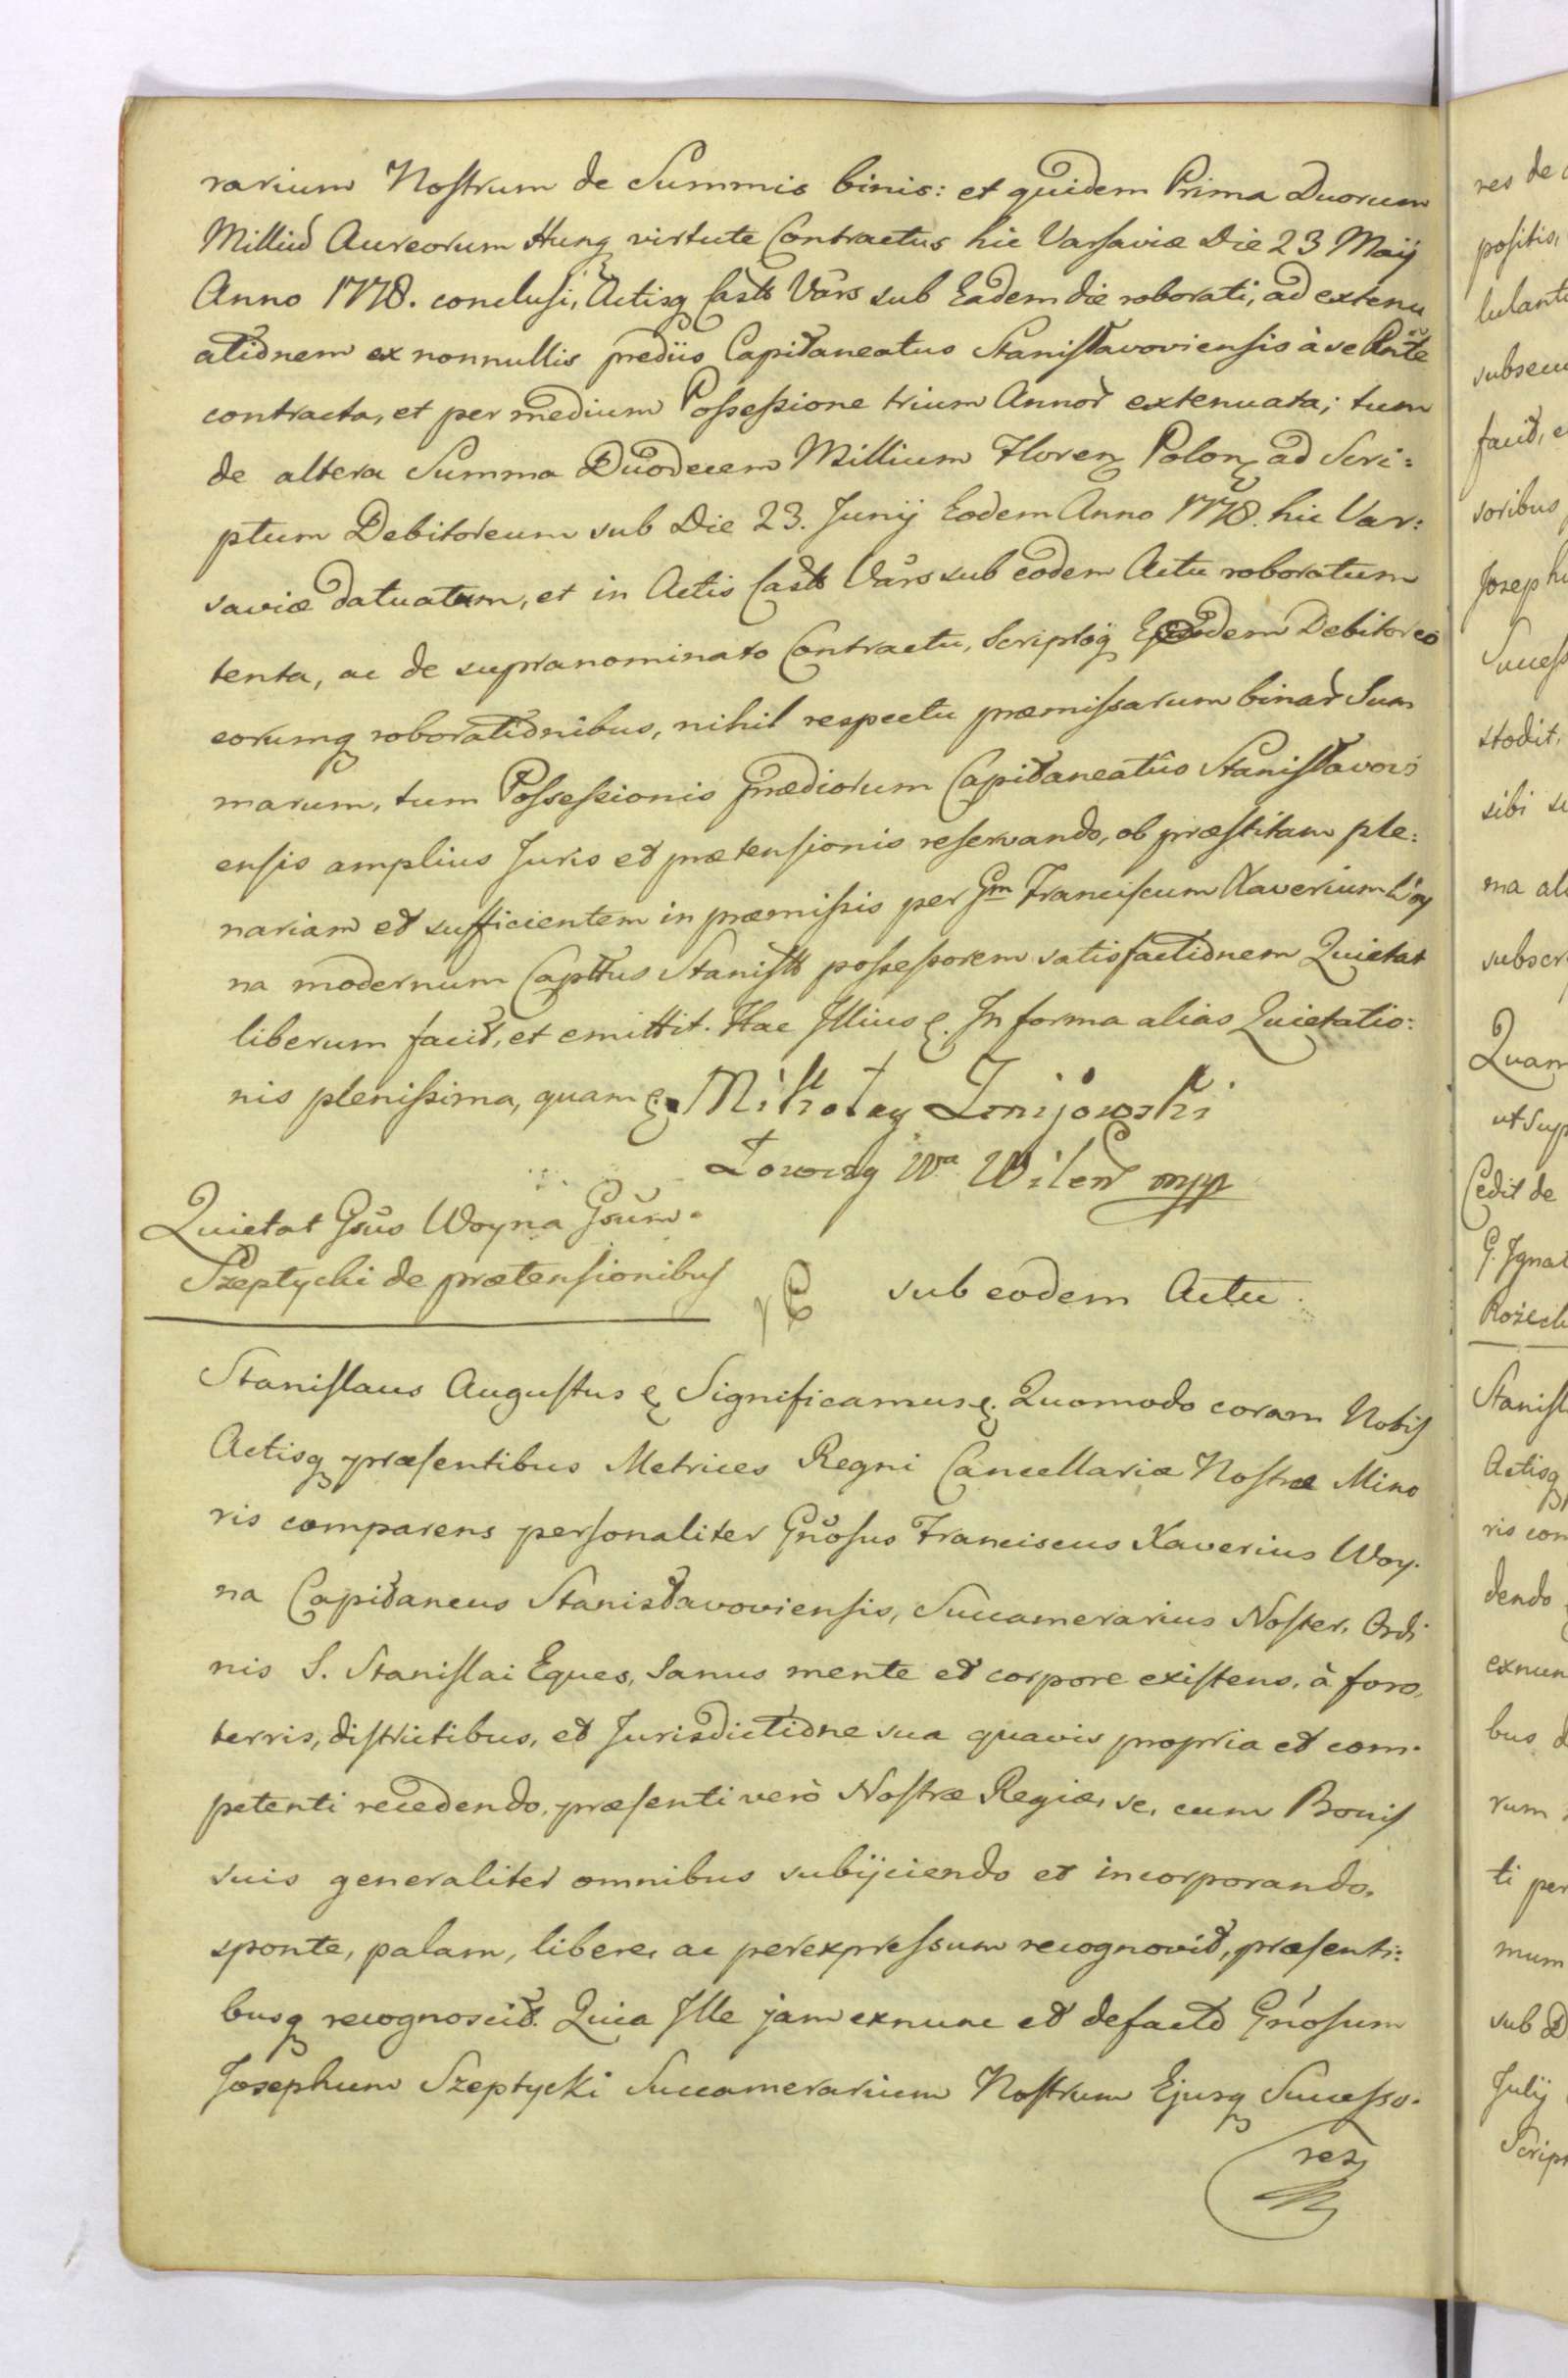 rarium Nostrum de Summis binis: et quidem Prima Duorum
Milliũ Aureorum Hung virtute Contractus hic Varsaviæ Die 23 Maij
Anno 1778. conclusi, Actisq Casts Vars sub Eadem die roborati, ad extenu
ationem ex nonnullis prediis Capitaneatus Stanisławoviensis à se
contracta, et per medium Possessione trium Annor extenuata; tum
de altera Summa Duodecem Millium Floren Polon ad Scri:
ptum Debitoreum sub Die 23. Junij Eodem Anno 1778. hic Var:
saviæ datuatum, et in Actis Casts Vars sub eodem Actu roboratum
tenta, ac de supranominato Contractu, Scriptoq Debitoreo
eorumq roborationibus, nihil respectu præmissarum binar Sum
marum, tum Possessionis Prædiorum Capitaneatûs Stanisławovi
ensis amplius Juris et prætensionis reservando, ob præstitam ple:
nariam et sufficientem in præmissis per Gm Franciscum Xaverium Woy
na modernum Capttus Stanists possessorem satisfactionem Quietat
liberum facit, et emittit. Hac Illius &. In forma alias Quietatio:
nis plenissima, quam &. Mikołay
Łowczy Wa Wileń mpp
Quietat Gsus Woyna Gsum
Szeptycki de prætensionibus
sub eodem Actu.
Stanislaus Augustus & Significamus &. Quomodo coram Nobis
Actisq præsentibus Metrices Regni Cancellariæ Nostræ Mino
ris comparens personaliter Gnosus Franciscus Xaverius Woy.
na Capitaneus Stanisławoviensis, Succamerarius Noster, Ordi
nis S. Stanislai Eques, Sanus mente et corpore existens, à foro,
terris, districtibus, et Jurisdictione sua quavis propria et com.
petenti recedendo, præsenti verò Nostræ Regiæ, se, cum Bonis
suis generaliter omnibus subijciendo et incorporando,
sponte, palam, libere, ac perexpressum recognovit, præsenti:
busq recognoscit. Quia Ille jam exnunc et defacto Gnosum
Josephum Szeptycki Succamerarium Nostrum Ejusq Successo.
res